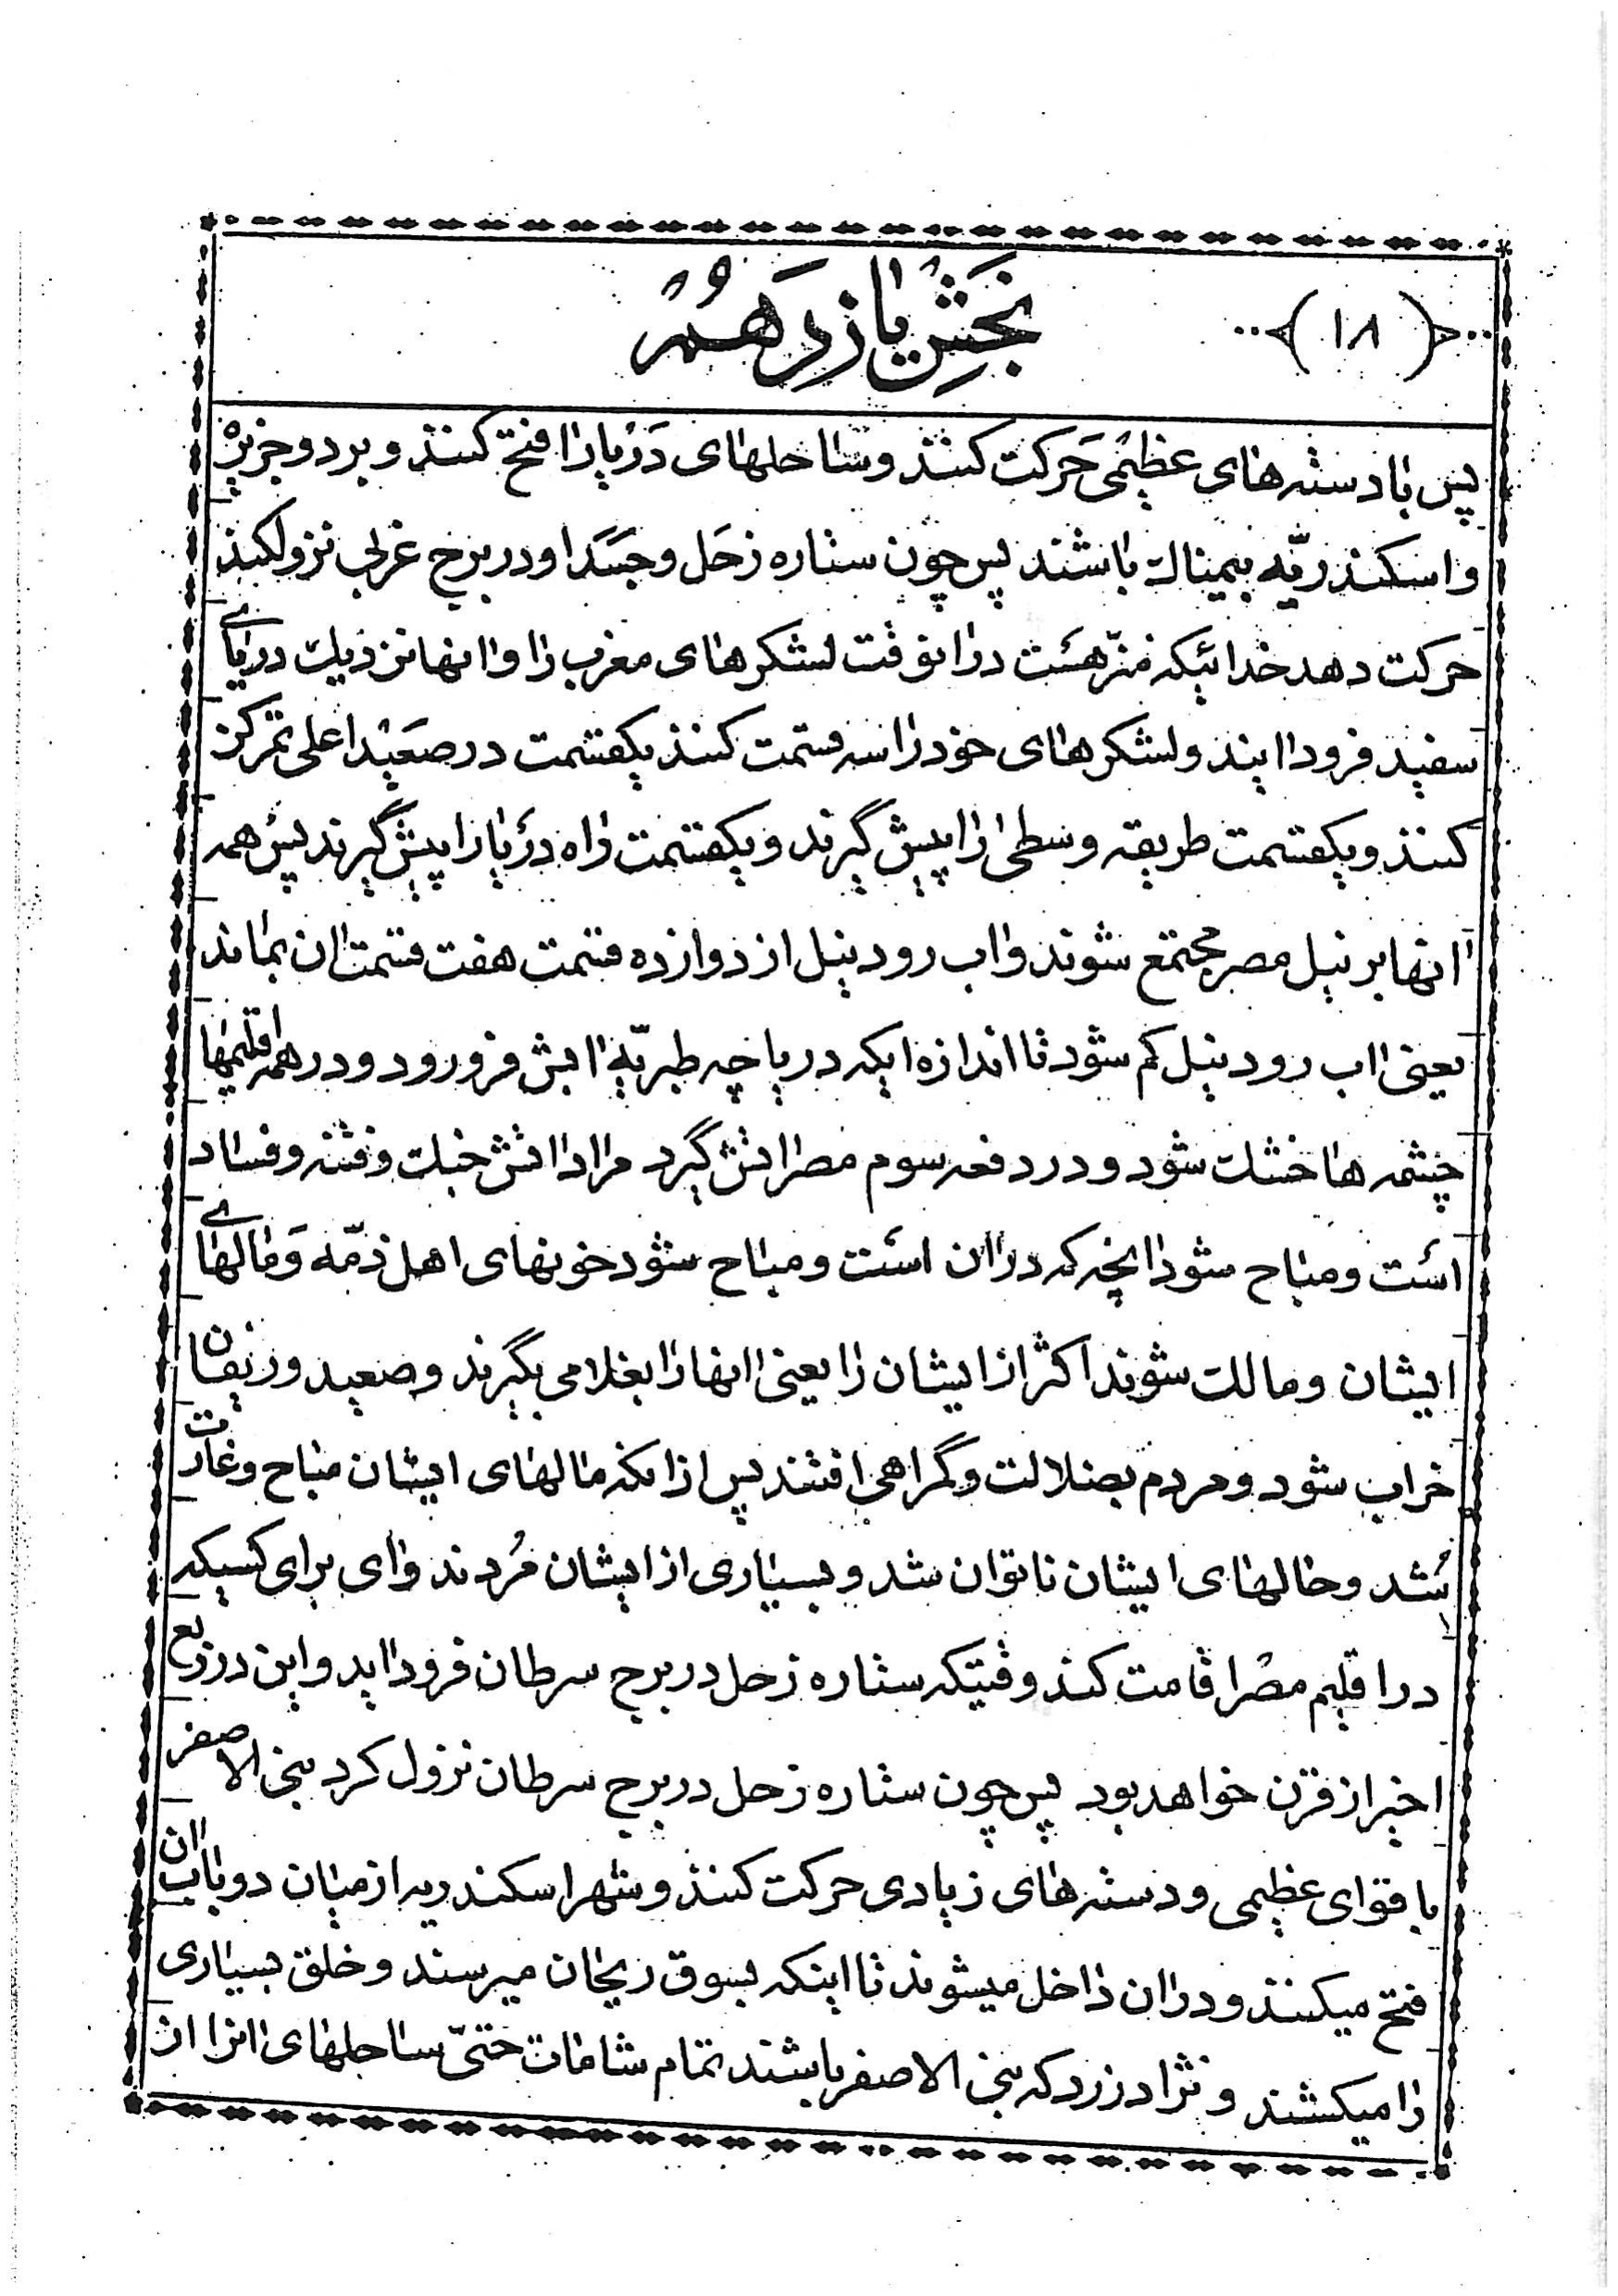 (۱۸)
بخش یازدهم
پس با دسته های عظیمی حرکت کنند و ساحلهای دریا را فتح کنند و بر دو جزیره
و اسکندریّه بیمناک باشند پس چون ستاره زحل و جسد او در برج غربی نزول کند
حرکت دهد خدائیکه منزّهست در انوقت لشکرهای مغرب را و انها نزدیک دریای
سفید فرود ایند و لشکرهای خود را سه قسمت کنند یکقسمت در صعید اعلی تمرکز
کنند و یکقسمت طریقه وسطی را پیش گیرند و یکقسمت راه دریا را پیش گیرند پس همه
انها بر نیل مصر مجتمع شوند و اب رود نیل از دوازده قسمت هفت قسمت ان بماند
یعنی اب رود نیل کم شود تا اندازه ایکه دریاچه طبریّه ابش فرو رود و در همه اقلیمها
چشمه ها خشک شود و در دفعه سوم مصر اتش گیرد مراد اتش جنک و فتنه و فساد
است و مباح شود انچه که در ان است و مباح شود خونهای اهل ذمّه و مالهای
ایشان و مالک شوند اکثر از ایشان را یعنی انها را بغلامی بگیرند و صعید و ریفان
خراب شود و مردم بضلالت و گمراهی افتند پس از انکه مالهای ایشان مباح و غارت
شد و حالهای ایشان ناتوان شد و بسیاری از ایشان مُردند وای برای کسیکه
در اقلیم مصر اقامت کند وقتیکه ستاره زحل در برج سرطان فرود اید و این در ربع
اخیر از قرن خواهد بود پس چون ستاره زحل در برج سرطان نزول کرد بنی الاصفر
با قوای عظیمی و دسته های زیادی حرکت کنند و شهر اسکندریه از میان دو باب ان
فتح میکنند و در ان داخل میشوند تا اینکه بسوق ریحان میرسند و خلق بسیاری
را میکشند و نژاد زرد که بنی الاصفر باشند تمام شامات حتّی ساحلهای انرا از